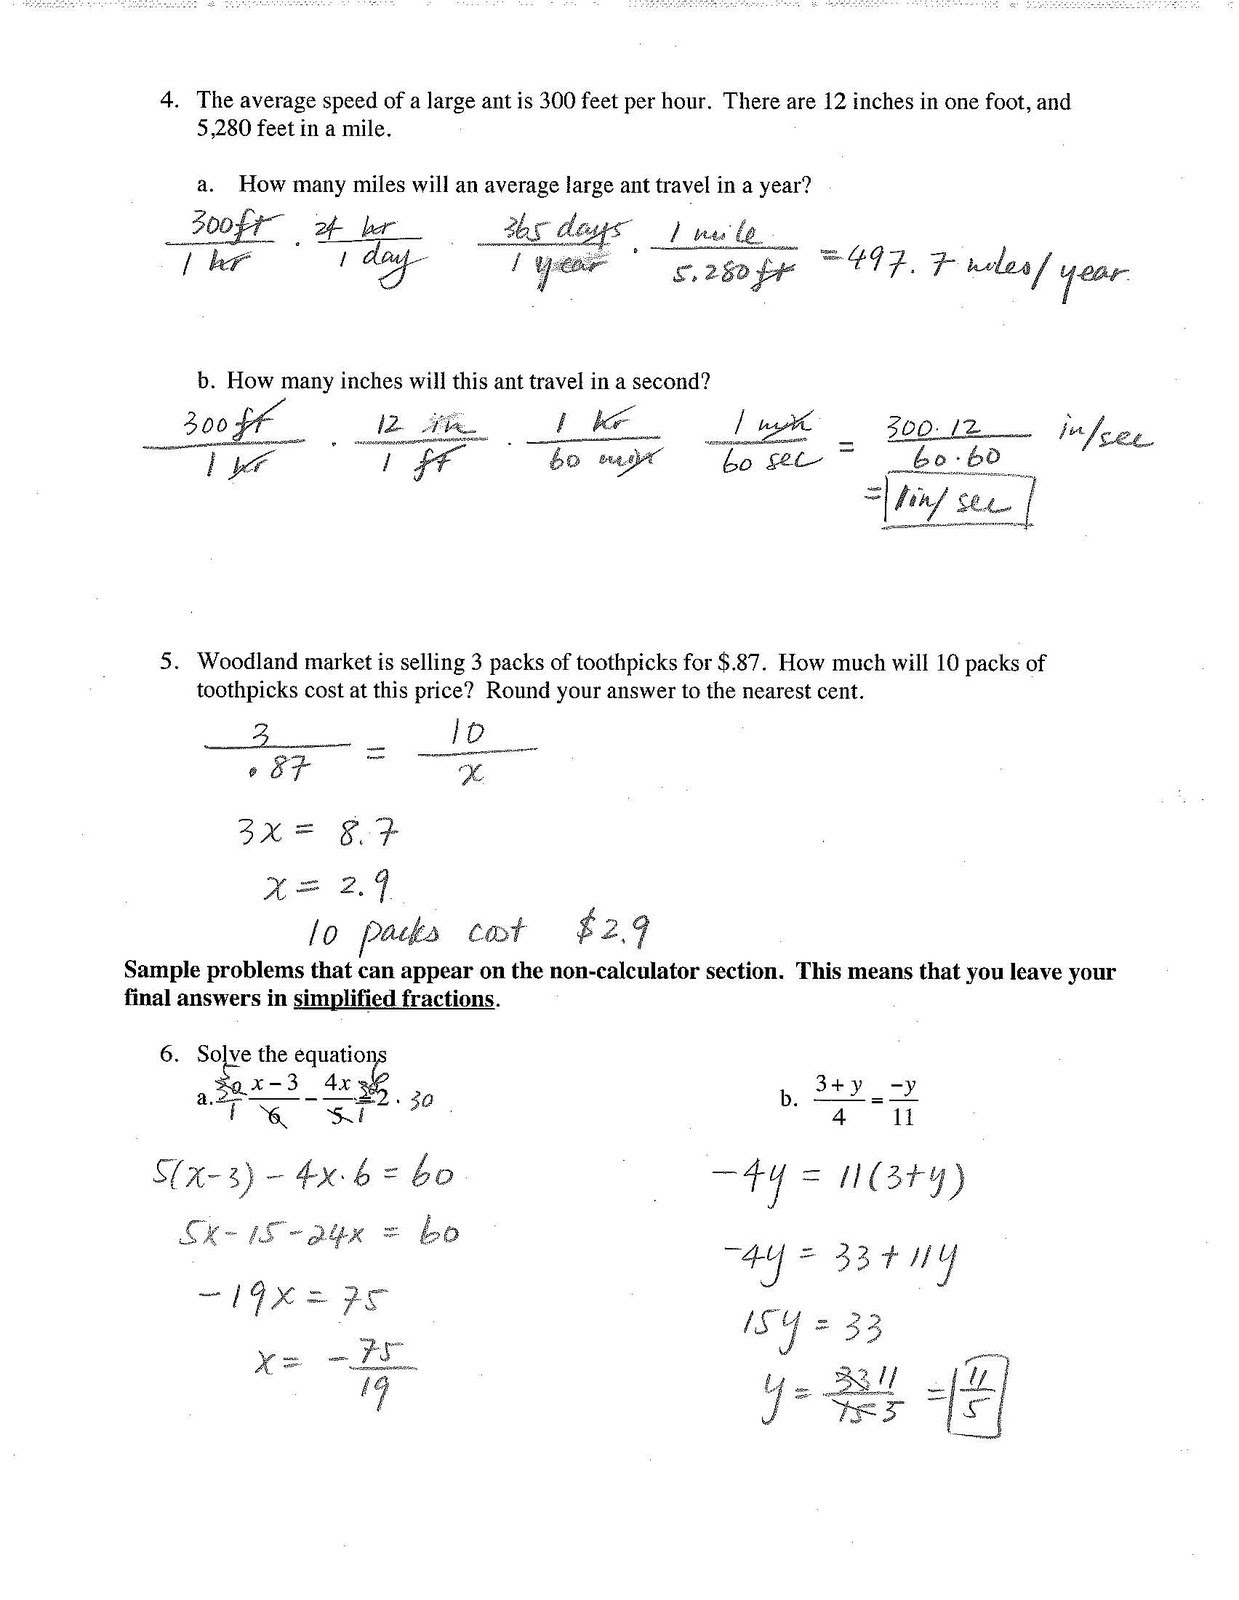 4. The average speed of a large ant is 300 feet per hour. There are 12 inches in one foot, and
5,280 feet in a mile.
a. How many miles will an average large ant travel in a year?
300ft/1 hr · 24 hr/1 day 365 days/1 year · 1 mile/5.280ft = 497.7 miles/year.
b. How many inches will this ant travel in a second?
300ft/1 hr · 12 in/1 ft · 1 hr/60 min 1 min/60 sec = 300·12/60·60 in/sec
= 1in/sec
5. Woodland market is selling 3 packs of toothpicks for $.87. How much will 10 packs of
toothpicks cost at this price? Round your answer to the nearest cent.
3/.87 = 10/x
3x = 8.7
x = 2.9
10 packs cost $2.9
Sample problems that can appear on the non-calculator section. This means that you leave your
final answers in simplified fractions.
6. Solve the equations
a. 30/1 x – 3/6 – 4x/5 30/1 = 2 · 30
5(x-3) - 4x·6 = 60
5x-15-24x = 60
-19x = 75
x = -75/19
b. 3 + y/4 = –y/11
-4y = 11(3+y)
-4y = 33 + 11y
15y = 33
y = 33 11/15 5 = 11/5